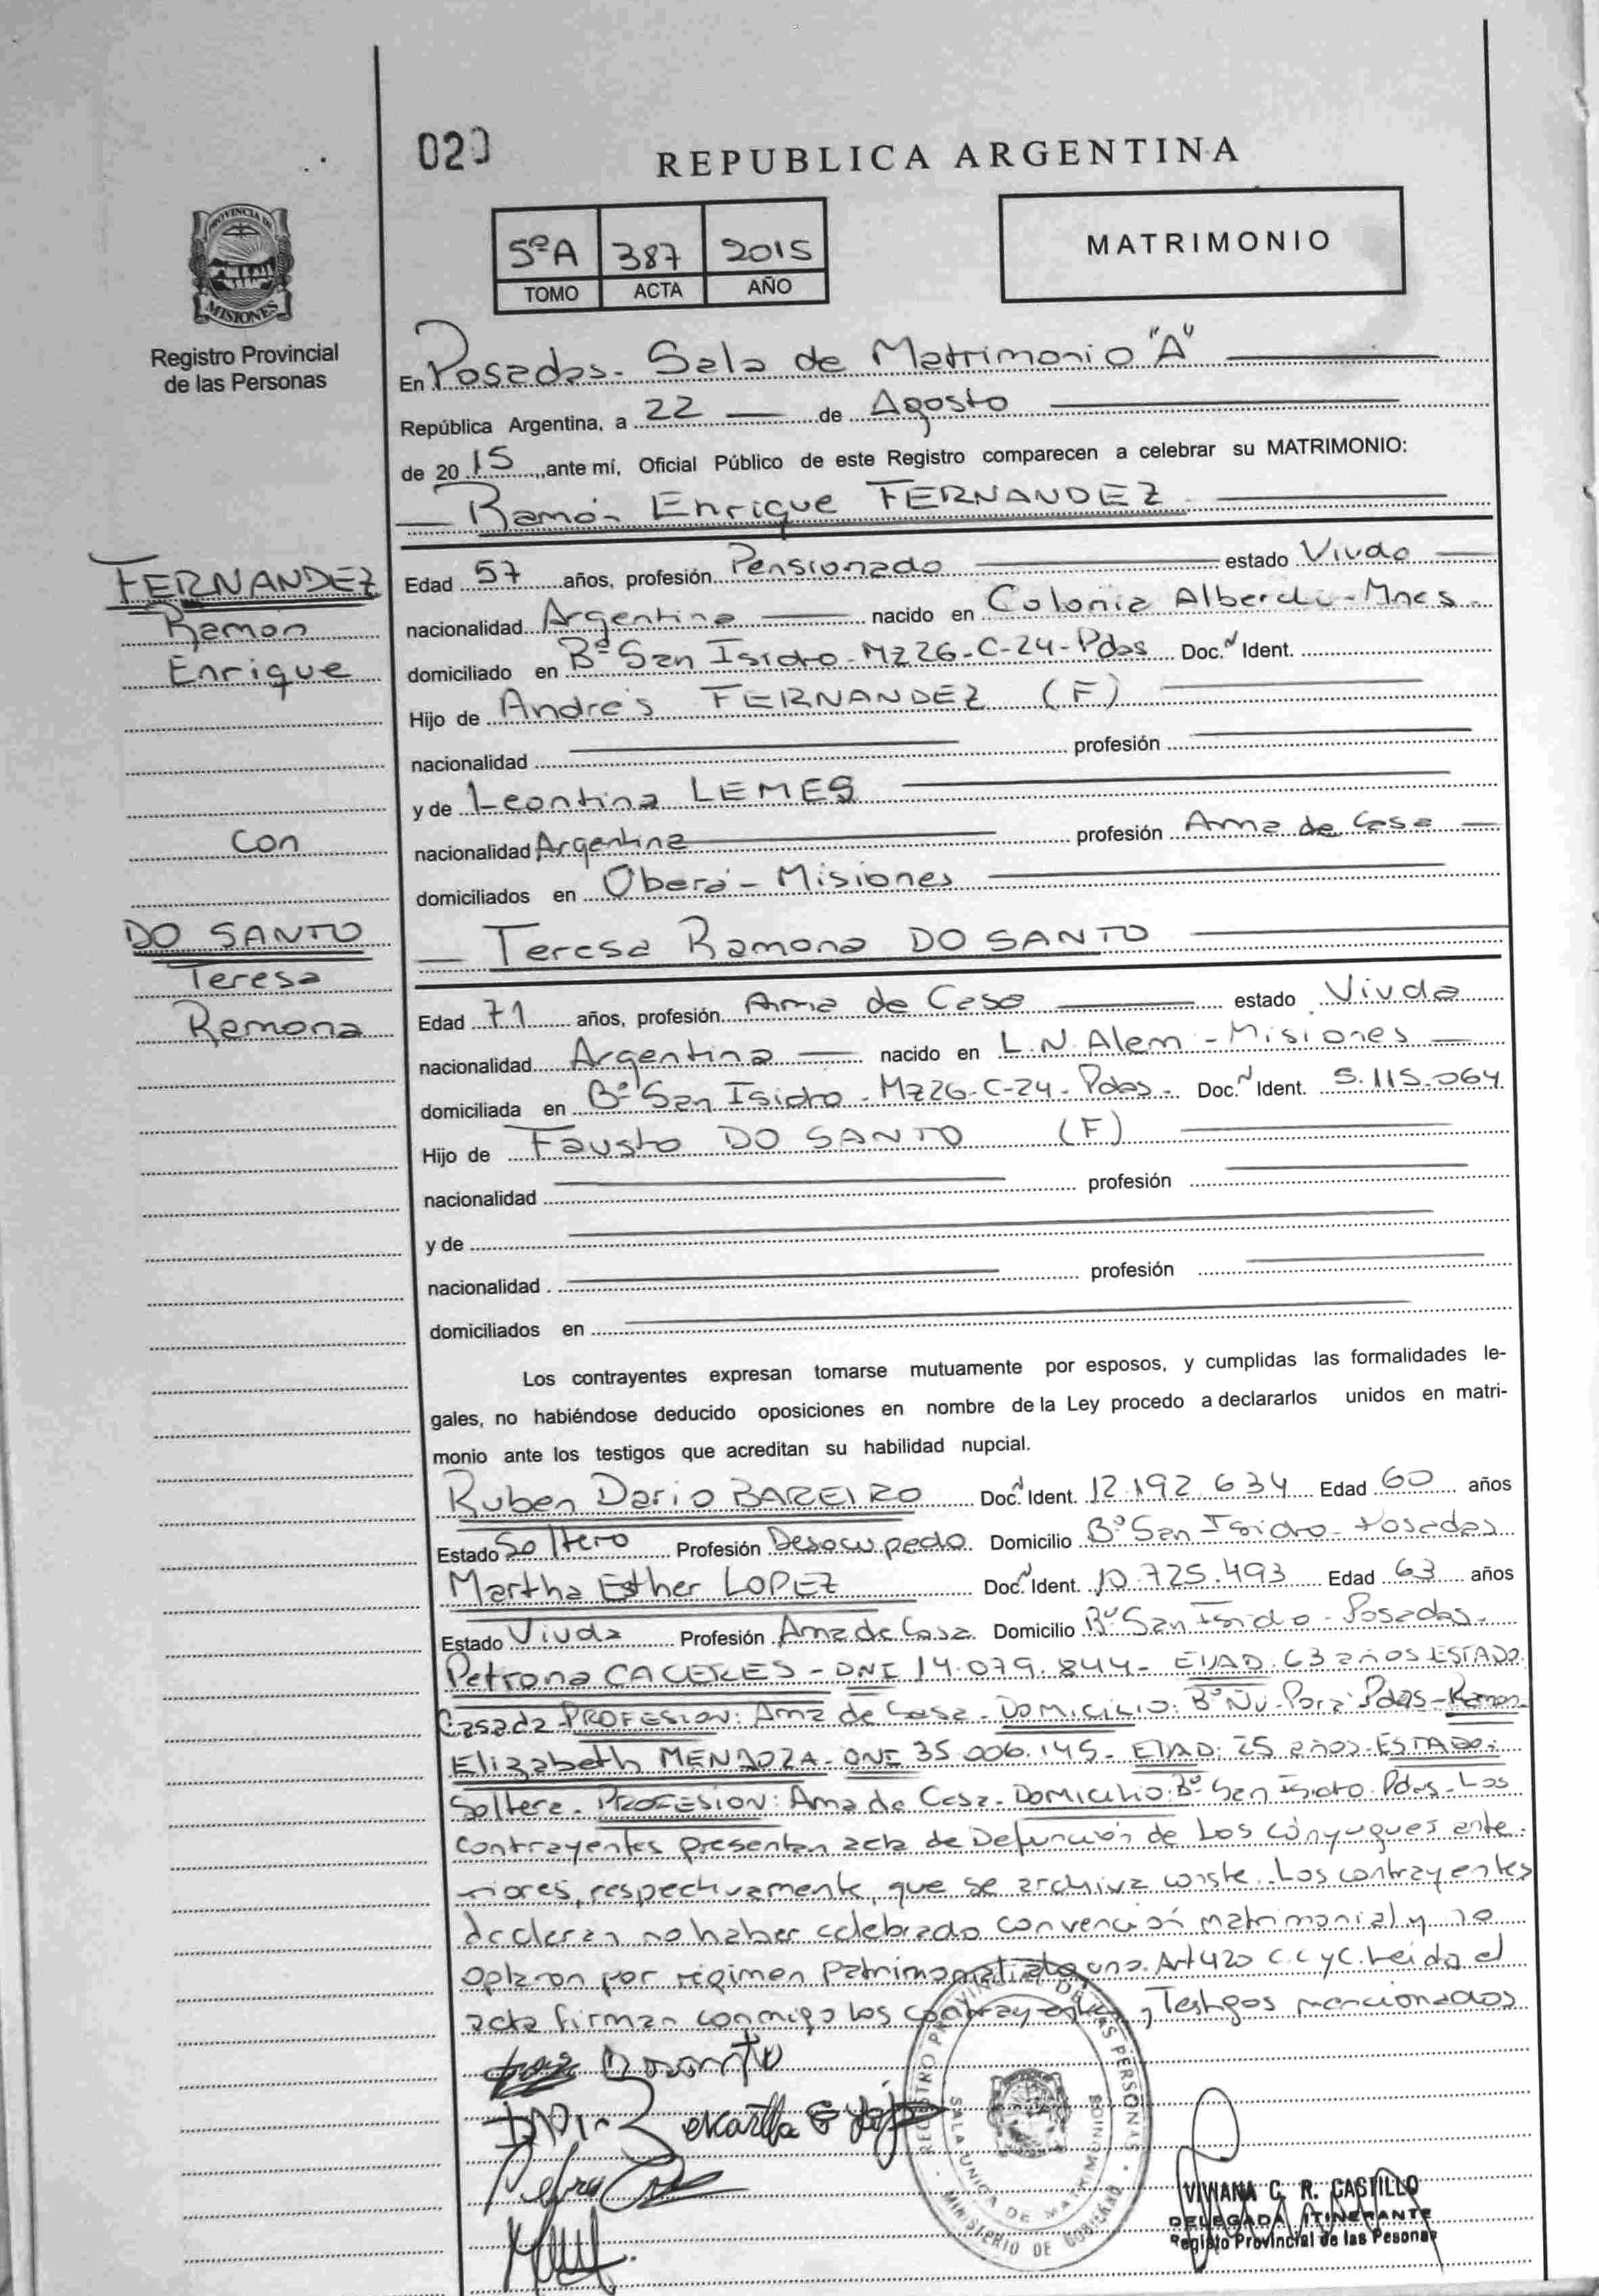 020
REPUBLICA ARGENTINA
PROVINCIA DE
MISIONES
Registro Provincial
de las Personas
5ºA 387 2015
TOMO ACTA AÑO
MATRIMONIO
En Posadas- Sala de Matrimonio "A"
República Argentina, a 22 de Agosto
de 2015, ante mí, Oficial Público de este Registro comparecen a celebrar su MATRIMONIO:
Ramón Enrique FERNANDEZ
FERNANDEZ
Ramon
Enrique
Con
DO SANTO
Teresa
Ramona
Edad 57 años, profesión Pensionado estado Viudo
nacionalidad Argentina nacido en Colonia Alberdi-Mnes-
domiciliado en Bº San Isidro-Mz 26-C-24-Pdas Doc. Ident.
Hijo de Andrés FERNANDEZ (F)
nacionalidad profesión
y de Leontina LEMES
nacionalidad Argentina profesión Ama de Casa
domiciliados en Oberá - Misiones
Teresa Ramona DO SANTO
Edad 71 años, profesión Ama de Casa estado Viuda
nacionalidad Argentina nacido en L.N.Alem - Misiones
domiciliada en Bº San Isidro-Mz 26-C-24-Pdas- Doc. Ident. 5.115.064
Hijo de Fausto DO SANTO (F)
nacionalidad profesión
y de
nacionalidad profesión
domiciliados en
Los contrayentes expresan tomarse mutuamente por esposos, y cumplidas las formalidades le-
gales, no habiéndose deducido oposiciones en nombre de la Ley procedo a declararlos unidos en matri-
monio ante los testigos que acreditan su habilidad nupcial.
Ruben Dario BAREIRO Doc. Ident. 12.192.634 Edad 60 años
Estado Soltero Profesión Desocupado Domicilio Bº San Isidro-Posadas
Martha Esther LOPEZ Doc. Ident. 10.725.493 Edad 63 años
Estado Viuda Profesión Ama de Casa Domicilio Bº San Isidro-Posadas-
Petrona CACERES - DNI 14.079.844- EDAD: 63 años ESTADO
Casada PROFESION: Ama de Casa - DOMICILIO: Bº Ñu-Porá Pdas-
Elizabeth MENDOZA- DNI 35.006.145- EDAD: 25 años-ESTADO:
Soltera- PROFESION: Ama de Casa-DOMICILIO: Bº San Isidro Pdas-Los
contrayentes presentan acta de Defunción de Los cónyugues ante-
riores, respectivamente, que se archiva conste. Los contrayentes
declaran no haber celebrado convención matrimonial y no
optaron por régimen Patrimonial alguno. Art 420 C.C y C. Leida el
acta firman conmigo los contrayentes y Testigos mencionados
REGISTRO PROVINCIAL DE LAS PERSONAS
SALA UNICA DE MATRIMONIOS
MINISTERIO DE GOBIERNO
VIVIANA C. R. CASTILLO
DELEGADA ITINERANTE
Registo Provincial de las Pesonas